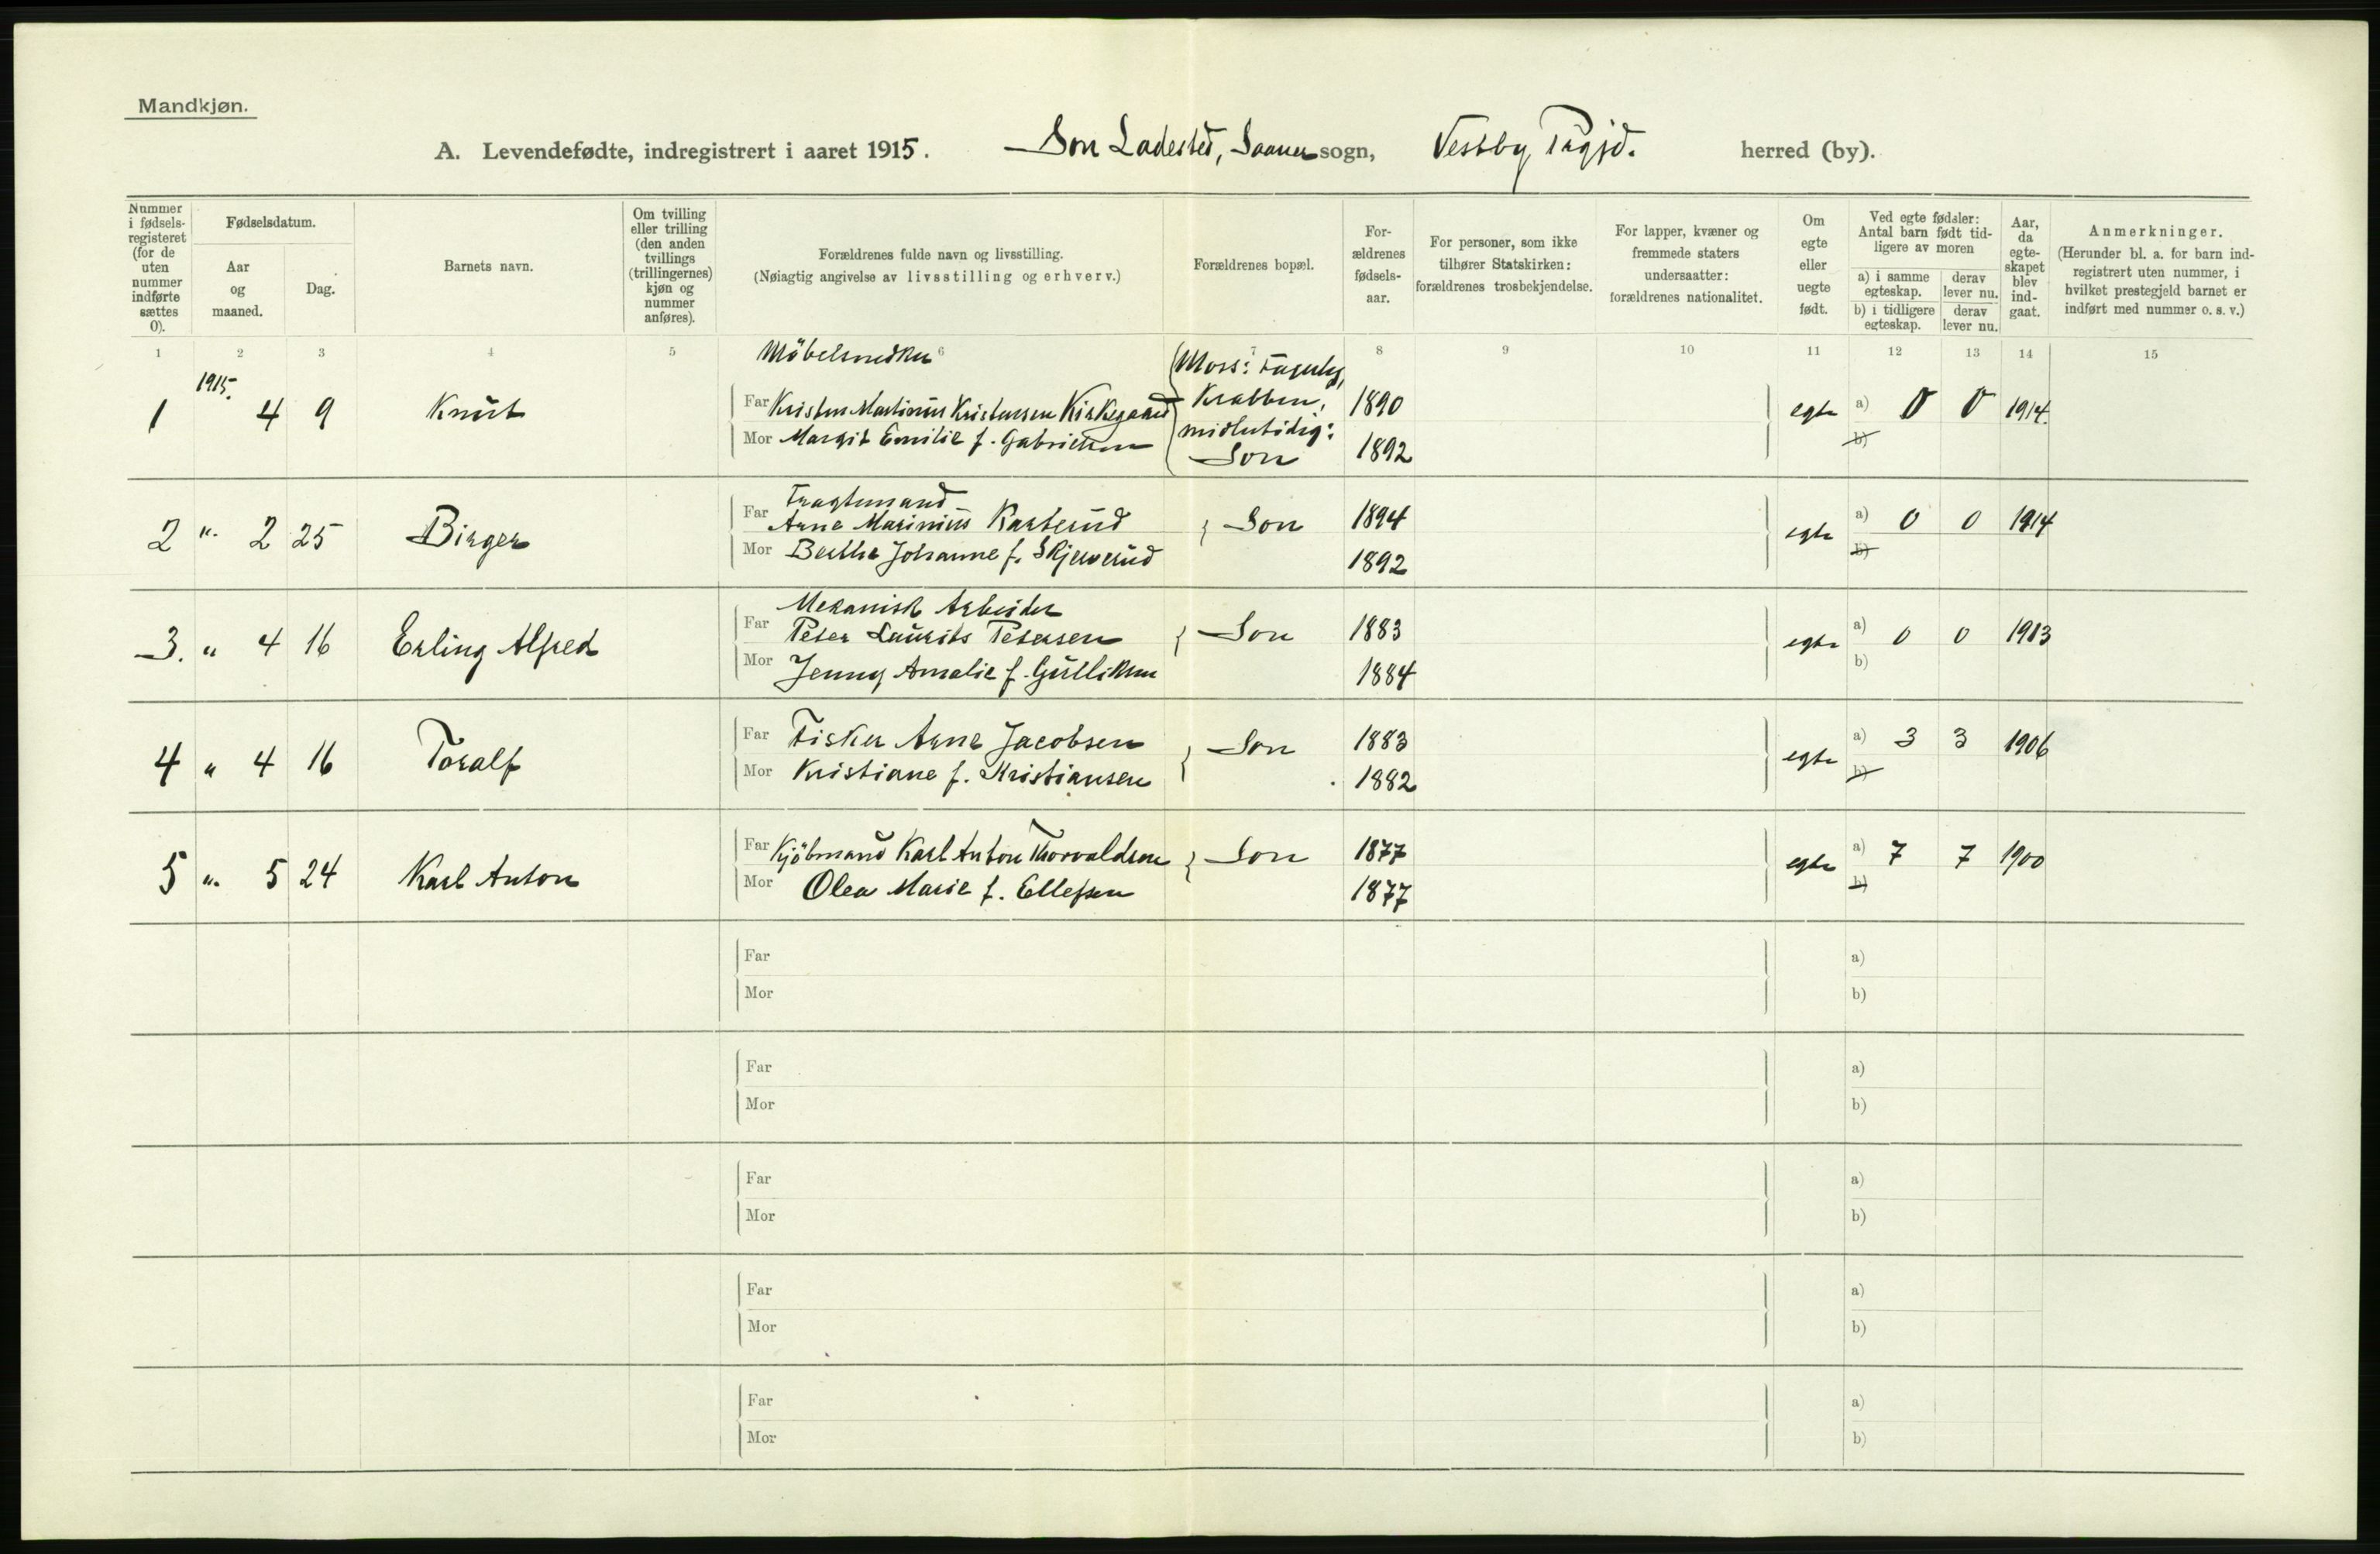 Mandkjøn.
A. Levendefødte, indregistrert i aaret 1915. Son Ladested, Saaner sogn, Vestby Prgjd. herred (by).
Nummer i fødselsregisteret (for de uten nummer indførte sættes 0).
Fødselsdatum.
Aar og maaned.
Dag.
Barnets navn.
Om tvilling eller trilling (den anden tvillings (trillingernes) kjøn og nummer anføres).
Forældrenes fulde navn og livsstilling.
(Nøiagtig angivelse av livsstilling og erhverv.)
Forældrenes bopæl.
Forældrenes fødselsaar.
For personer, som ikke tilhører Statskirken: forældrenes trosbekjendelse.
For lapper, kvæner og fremmede staters undersaatter: forældrenes nationalitet.
Om egte eller uegte født.
Ved egte fødsler: Antal barn født tidligere av moren
a) i samme egteskap. derav lever nu.
b) i tidligere egteskap. derav lever nu.
Aar, da egteskapet blev indgaat.
Anmerkninger.
(Herunder bl. a. for barn indregistrert uten nummer, i hvilket prestegjeld barnet er indført med nummer o. s. v.)
1 2 3 4 5 6 7 8 9 10 11 12 13 14 15
Möbelsnedker
1 1915. 4 9 Knut Far Kristen Martinius Kristensen Kirkegaard Moss: Krabben, midlertidig: Son 1890 egte a) 0 0 1914.
Mor Margit Emilie f. Gabrielsen 1892 b)
Fragtemand
2 " 2 25 Birger Far Arne Marinius Karterud Son 1894 egte a) 0 0 1914
Mor Berthe Johanne f. Skjewerud 1892 b)
Mekanisk Arbeider
3. " 4 16 Erling Alfred Far Peter Laurits Petersen Son 1883 egte a) 0 0 1913
Mor Jenny Amalie f. Gulliksen 1884 b)
4 " 4 16 Toralf Far Fisker Arne Jacobsen Son 1883 egte a) 3 3 1906
Mor Kristiane f. Kristiansen 1882 b)
5 " 5 24 Karl Anton Far Kjöbmand Karl Anton Thorvaldsen Son 1877 egte a) 7 7 1900
Mor Olea Marie f. Ellefsen 1877 b)
Far a)
Mor b)
Far a)
Mor b)
Far a)
Mor b)
Far a)
Mor b)
Far a)
Mor b)